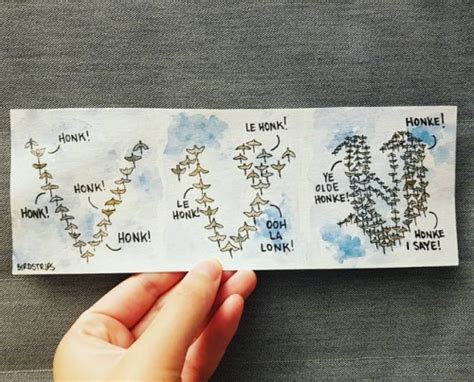 HONK!
HONK!
HONK!
HONK!
BIRDSTRIPS
LE HONK!
LE
HONK!
OOH
LA
LONK!
HONKE!
YE
OLDE
HONKE!
HONKE
I SAYE!